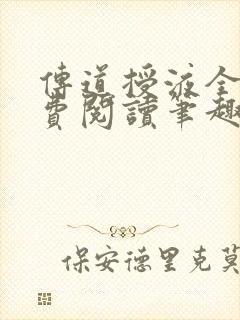 傳道授液全
費閱讀筆趣
保安德里克莫